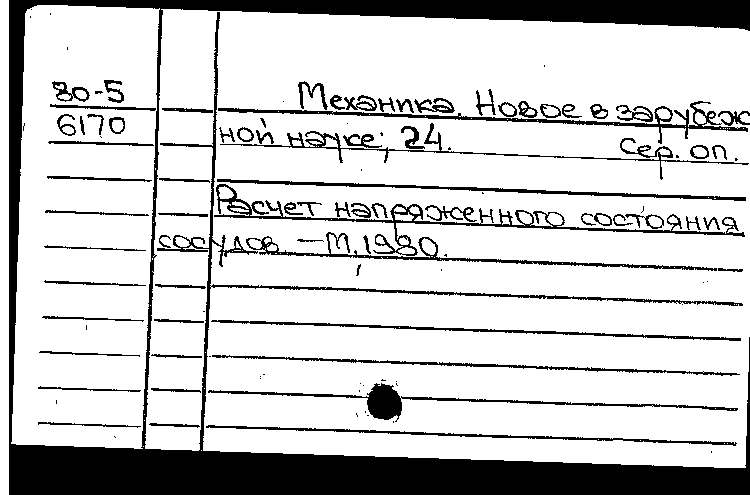 80-5 Механика. Новое в зарубеж
6170 ной науке; 24. сер. оп.
Расчет напряженного состояния
сосудов. — М., 1980.